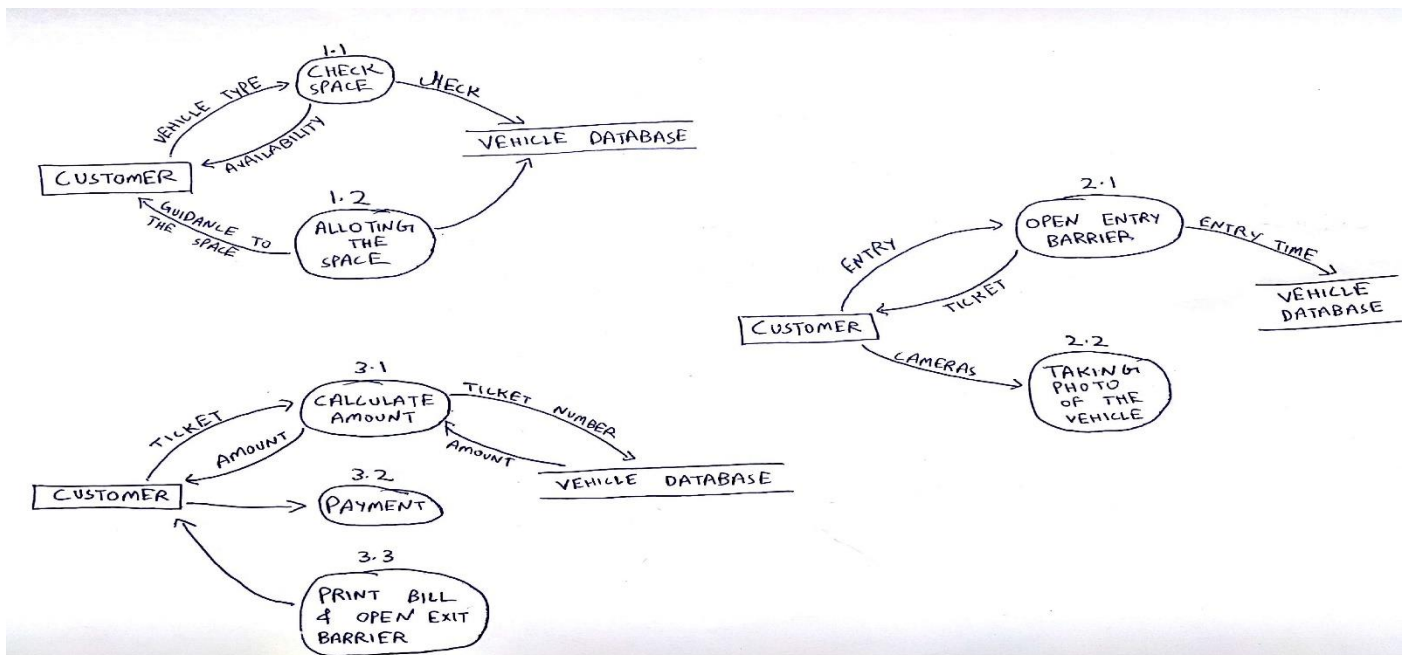 1.1
CHECK
SPACE
VEHICLE TYPE
AVAILABILITY
CHECK
VEHICLE DATABASE
CUSTOMER
1.2
ALLOTING
THE
SPACE
GUIDANCE TO
THE SPACE
2.1
OPEN ENTRY
BARRIER
ENTRY
TICKET
ENTRY TIME
VEHICLE
DATABASE
CUSTOMER
CAMERAS
2.2
TAKING
PHOTO
OF THE
VEHICLE
3.1
CALCULATE
AMOUNT
TICKET
AMOUNT
TICKET NUMBER
AMOUNT
VEHICLE DATABASE
CUSTOMER
3.2
PAYMENT
3.3
PRINT BILL
& OPEN EXIT
BARRIER